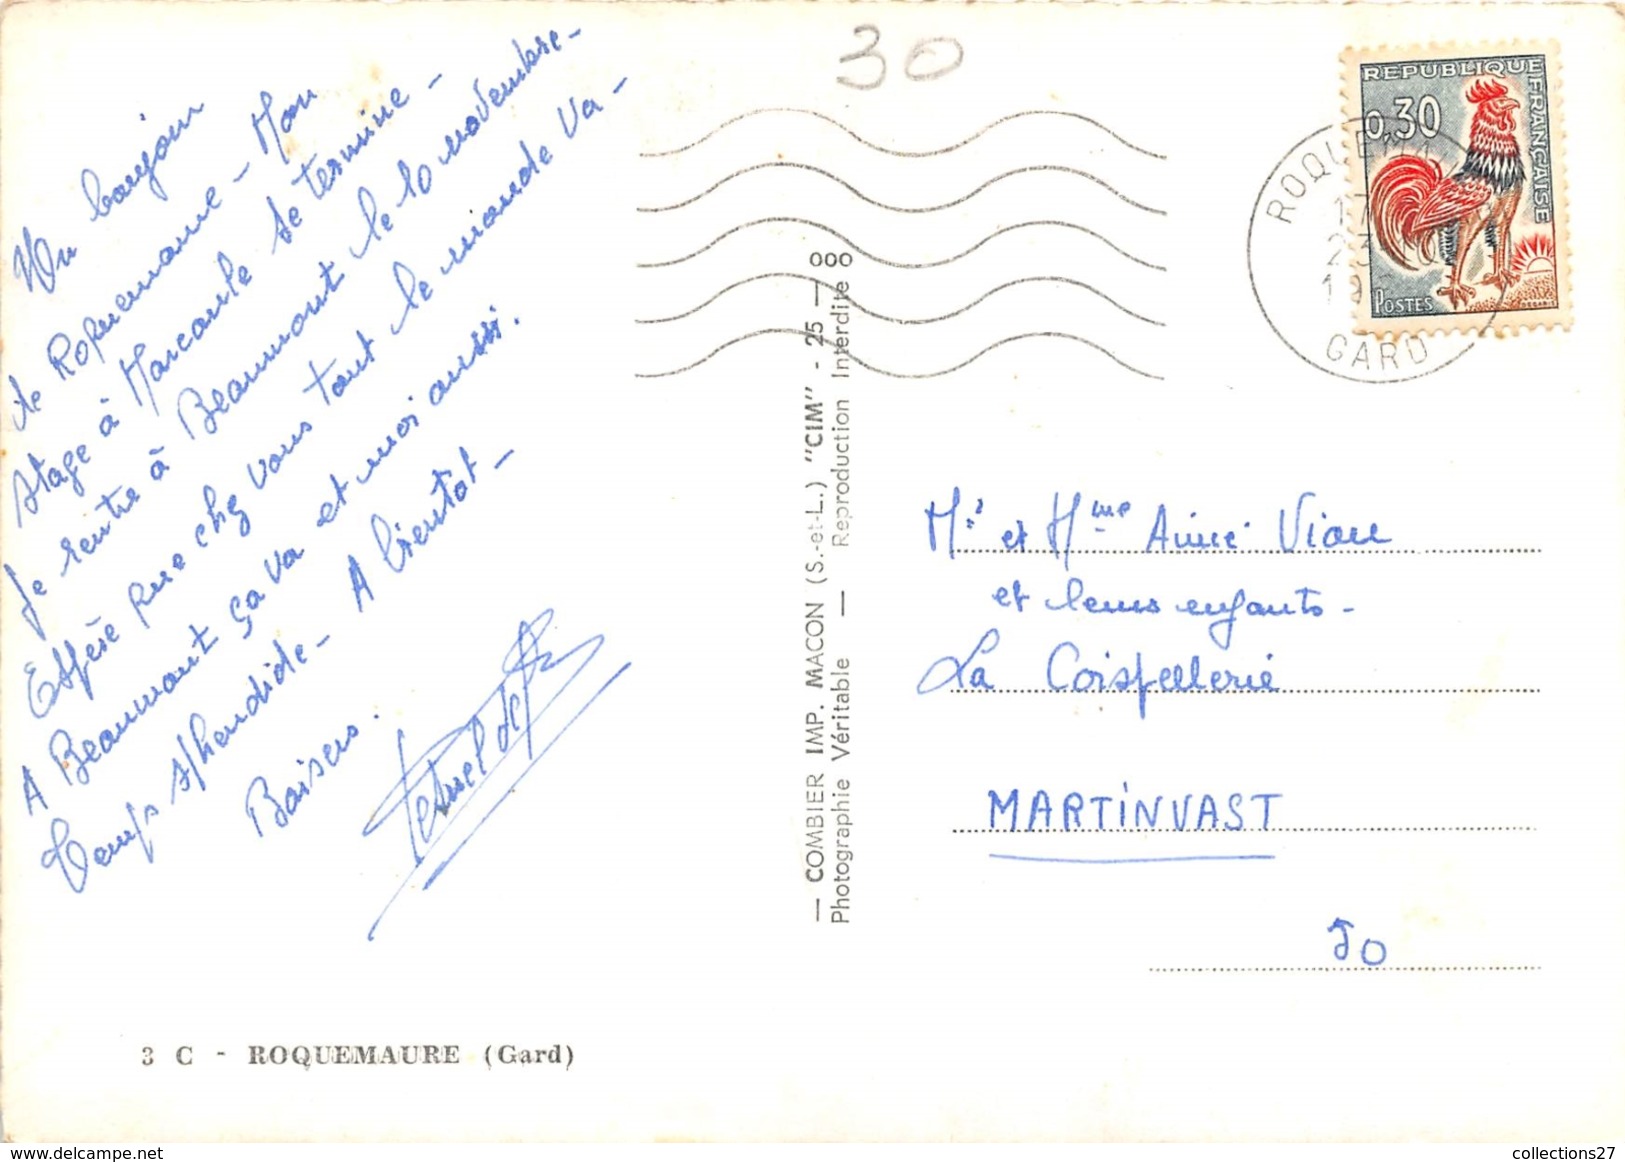 Un bonjour
de Roquemaure - Mon
stage à Marcoule se termine -
Je rentre à Beaumont le 10 novembre -
Espère que chez vous tout le monde va -
A Beaumont ça va et moi aussi.
Temps splendide - A bientot -
Baisers.
3 C - ROQUEMAURE (Gard)
— COMBIER IMP. MACON (S.-et-L.) "CIM" - 25 — 000
Photographie Véritable — Reproduction Interdite
30
REPUBLIQUE FRANÇAISE
0,30
POSTES
ROQUEMA
17
23 10
19
GARD
Mr et Mme Aimé Viau
et leurs enfants -
La Coispellerie
MARTINVAST
50
collections27